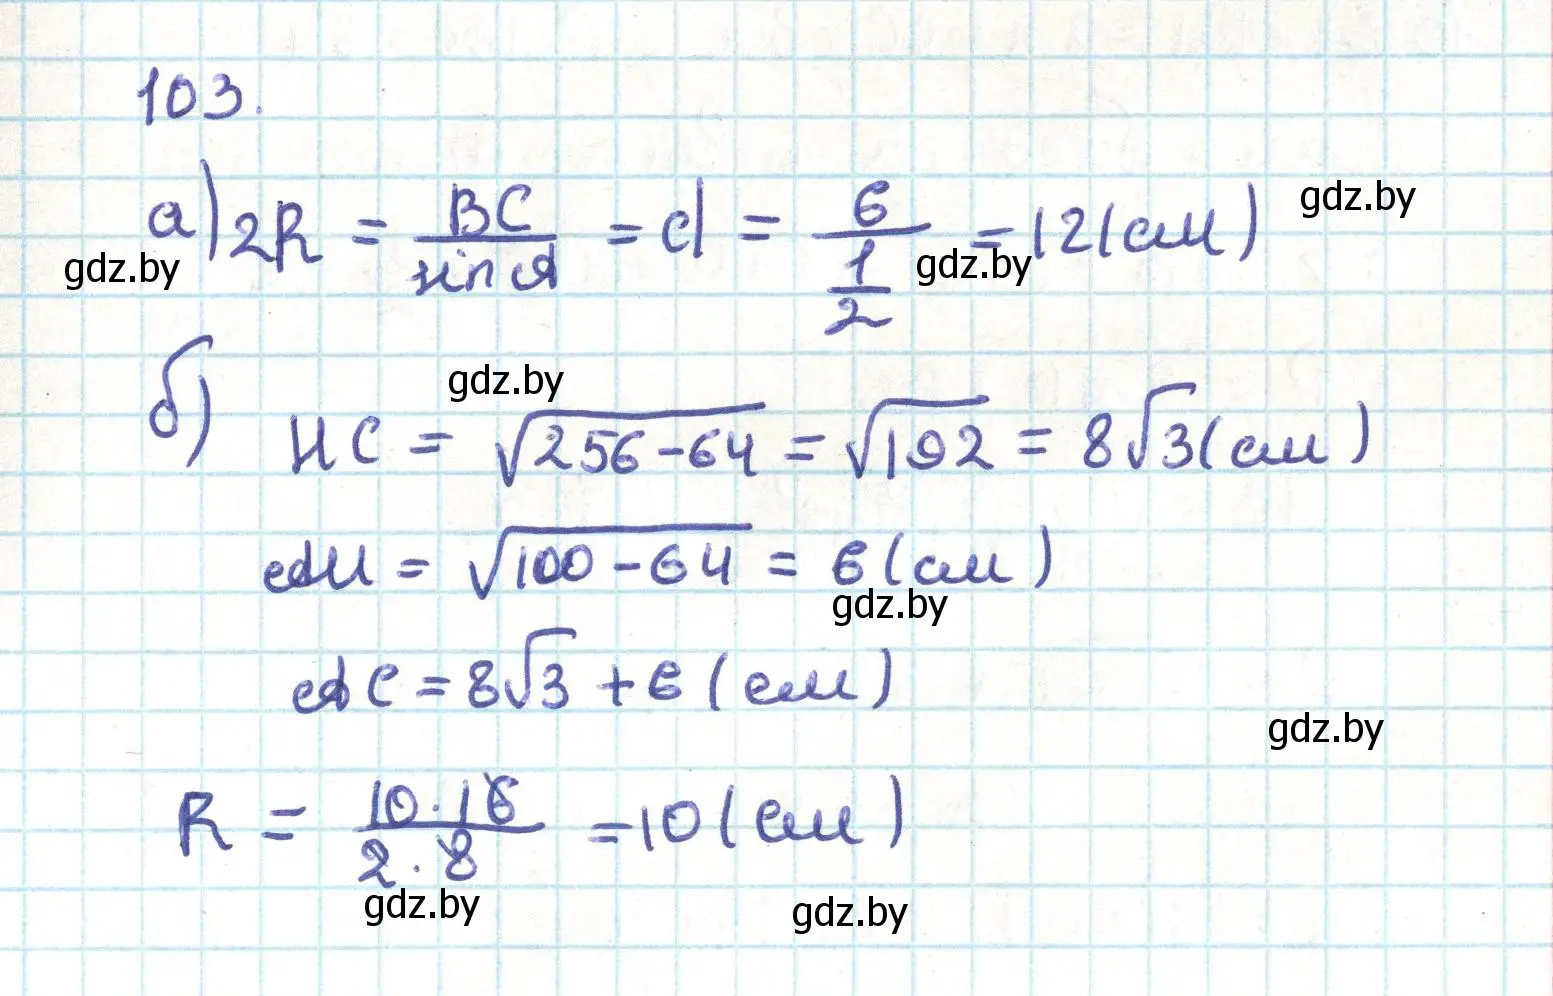 103.
а) 2R = BC / sin A = d = 6 / (1/2) = 12 (см)
gdz.by
gdz.by
gdz.by
gdz.by
б) HC = √(256-64) = √192 = 8√3 (см)
AH = √(100-64) = 6 (см)
gdz.by
AC = 8√3 + 6 (см)
gdz.by
R = (10·16) / (2·8) = 10 (см)
gdz.by
gdz.by